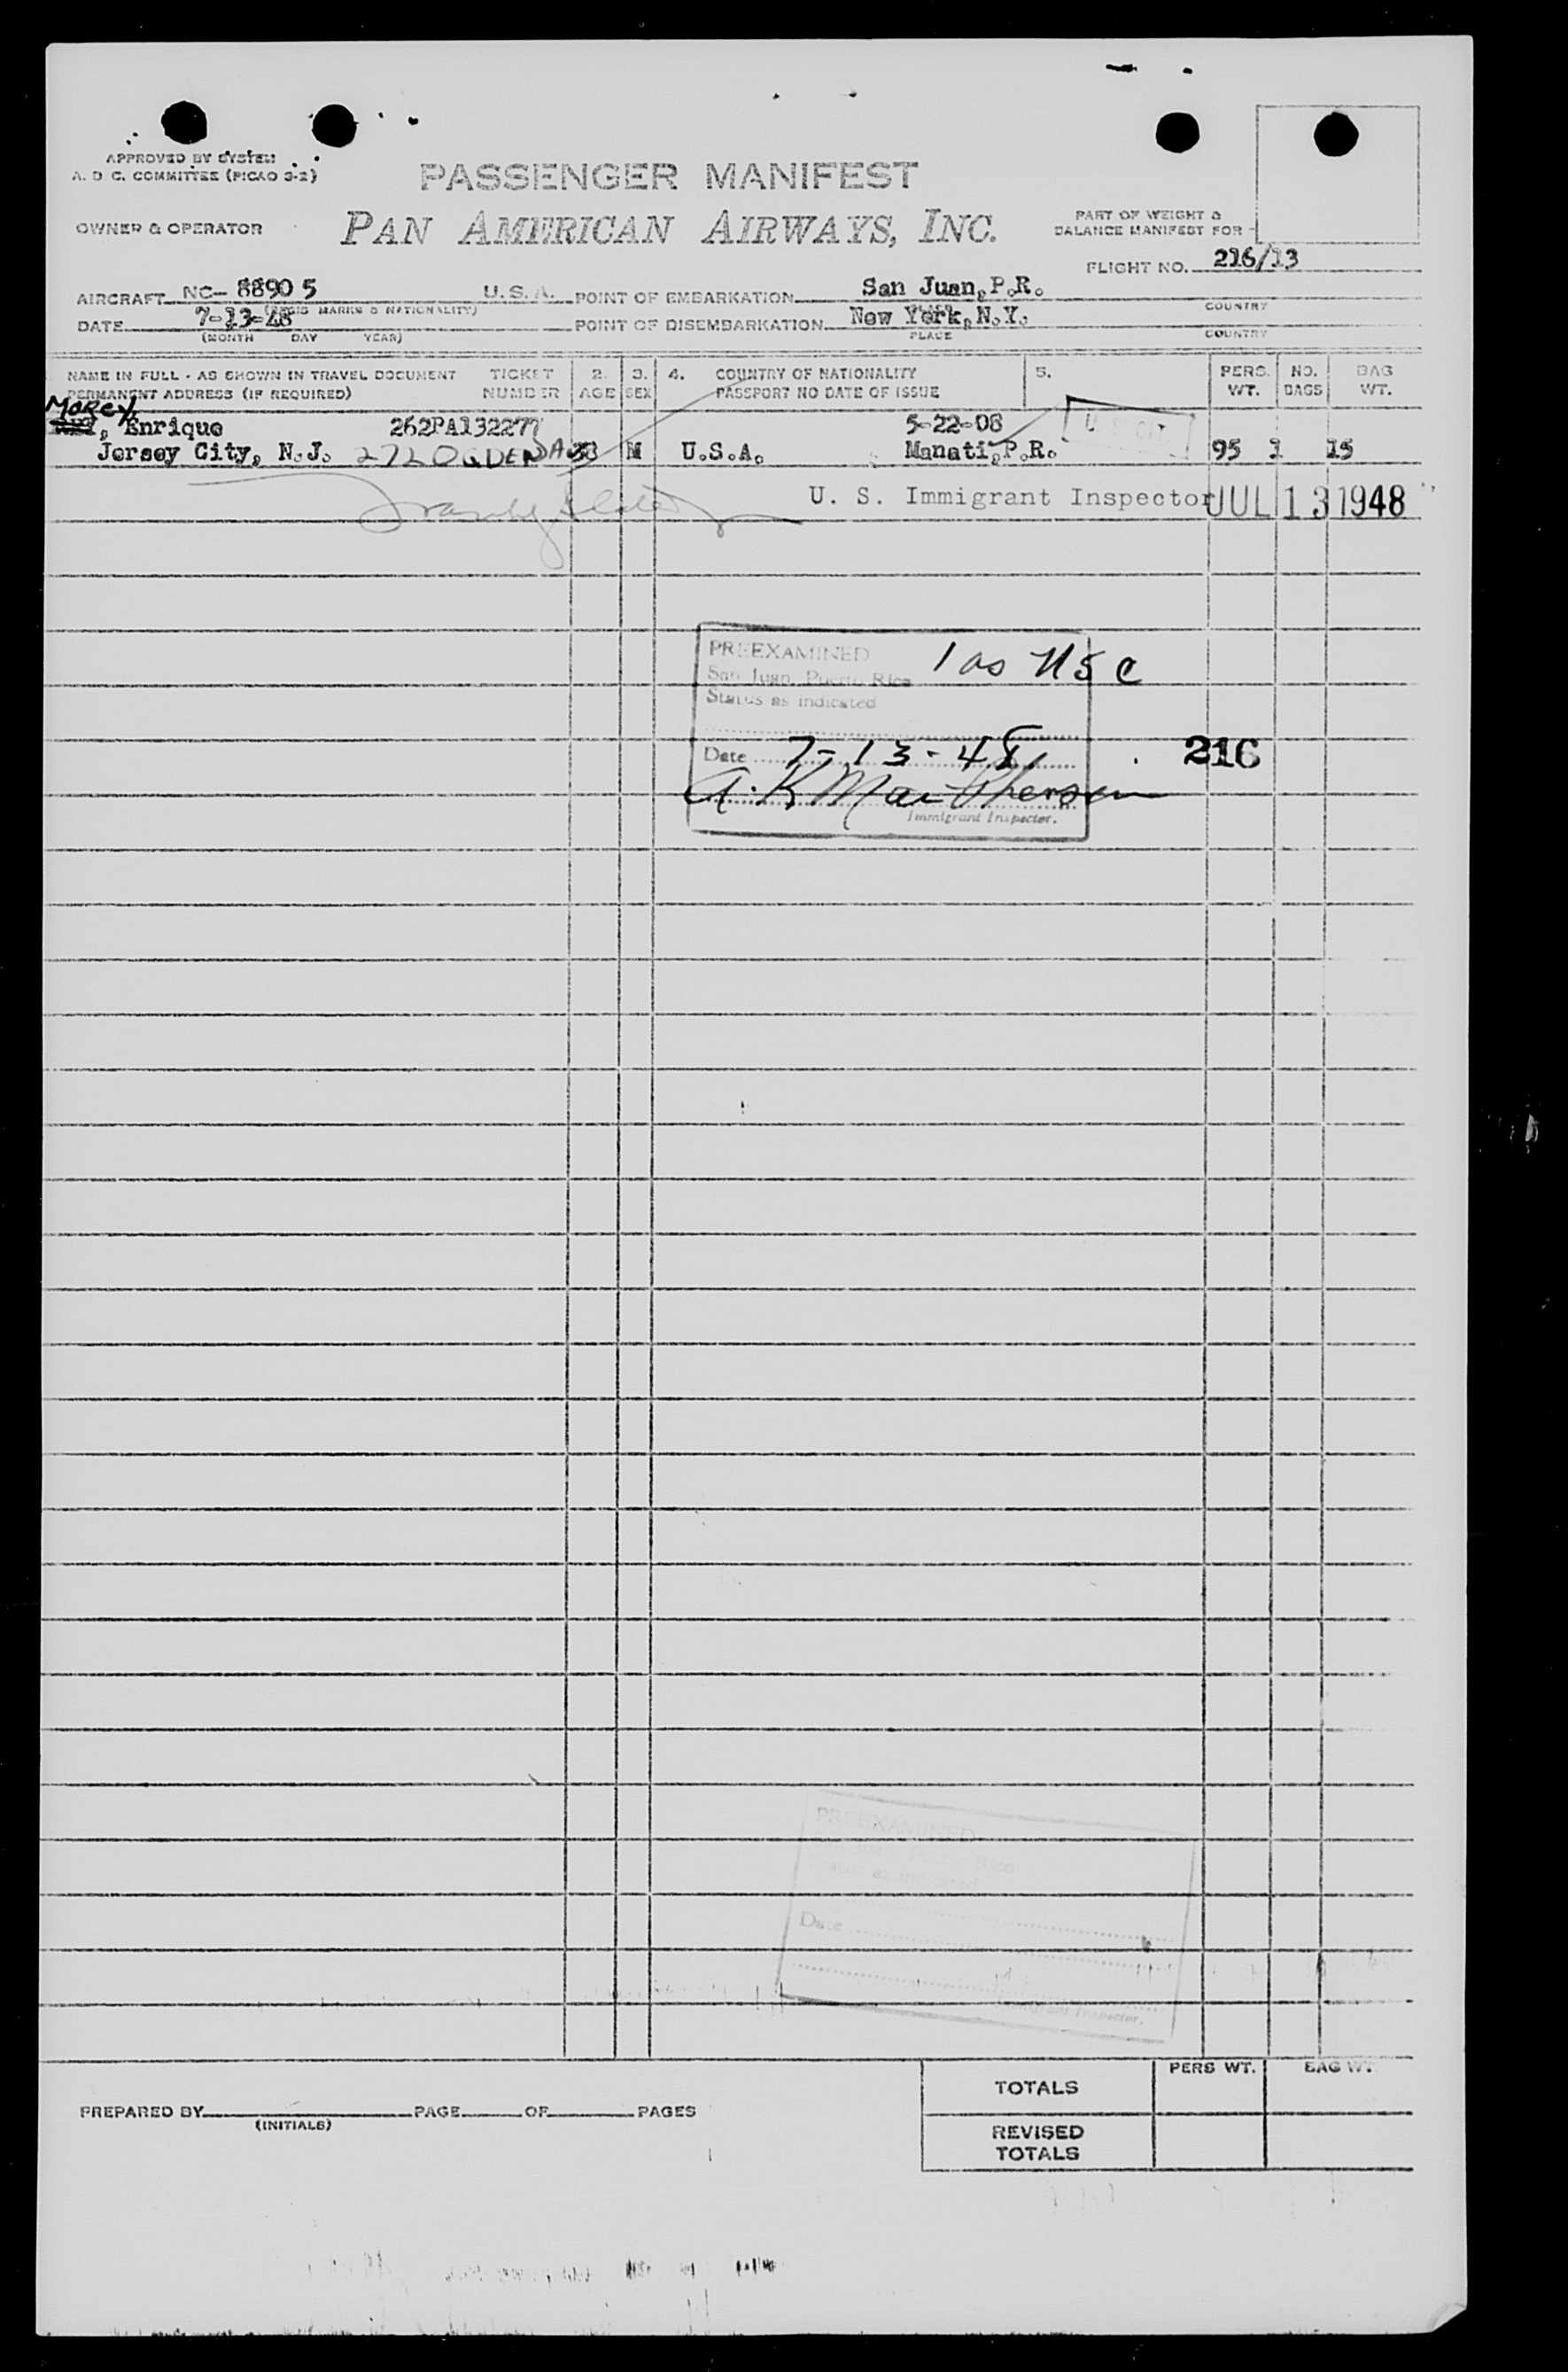 APPROVED BY SYSTEM
A. D. C. COMMITTEE (PICAO 3-2)
PASSENGER MANIFEST
OWNER & OPERATOR PAN AMERICAN AIRWAYS, INC.
PART OF WEIGHT &
BALANCE MANIFEST FOR
FLIGHT NO. 216/13
AIRCRAFT NC- 88905 U.S.A. POINT OF EMBARKATION San Juan, P.R.
(REGIS MARKS & NATIONALITY) PLACE COUNTRY
DATE 7-13-48 POINT OF DISEMBARKATION New York, N.Y.
(MONTH DAY YEAR) PLACE COUNTRY
NAME IN FULL - AS SHOWN IN TRAVEL DOCUMENT TICKET 2. 3. 4. COUNTRY OF NATIONALITY 5. PERS. NO. BAG
PERMANENT ADDRESS (IF REQUIRED) NUMBER AGE SEX PASSPORT NO DATE OF ISSUE WT. BAGS WT.
MOREY
, Enrique 262PA132277 5-22-08
Jersey City, N.J. 272 OGDEN AV M U.S.A. Manati, P.R. 95 1 15
U. S. Immigrant Inspector JUL 13 1948
PREEXAMINED 1 as USC
San Juan, Puerto Rico
Status as indicated
Date 7-13-48 216
A. K. MacPherson
Immigrant Inspector.
PREEXAMINED
San Juan, Puerto Rico
Status as indicated
Date
Immigrant Inspector.
PERS WT. BAG WT.
TOTALS
PREPARED BY PAGE OF PAGES
(INITIALS)
REVISED
TOTALS